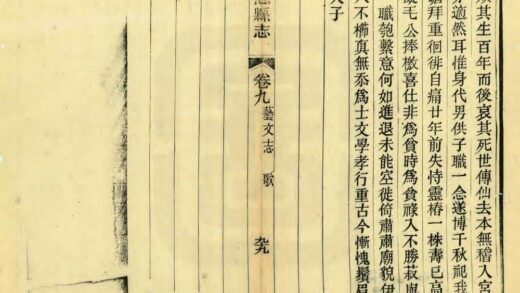 其生百年而後哀其死世傳仙去本無稽入宮
適然耳惟身代男供子職一念遂博千秋祀我
拜重徊徘自痛廿年前失恃靈椿一株壽已高
毛公捧檄喜仕非爲貧時爲貧祿入不勝菽
職匏繫意何如進退未能空徙倚肅肅廟貌伊
人不櫛真無忝爲士文學孝行重古今慚愧鬚眉
子
縣志
卷九
藝文志
歌